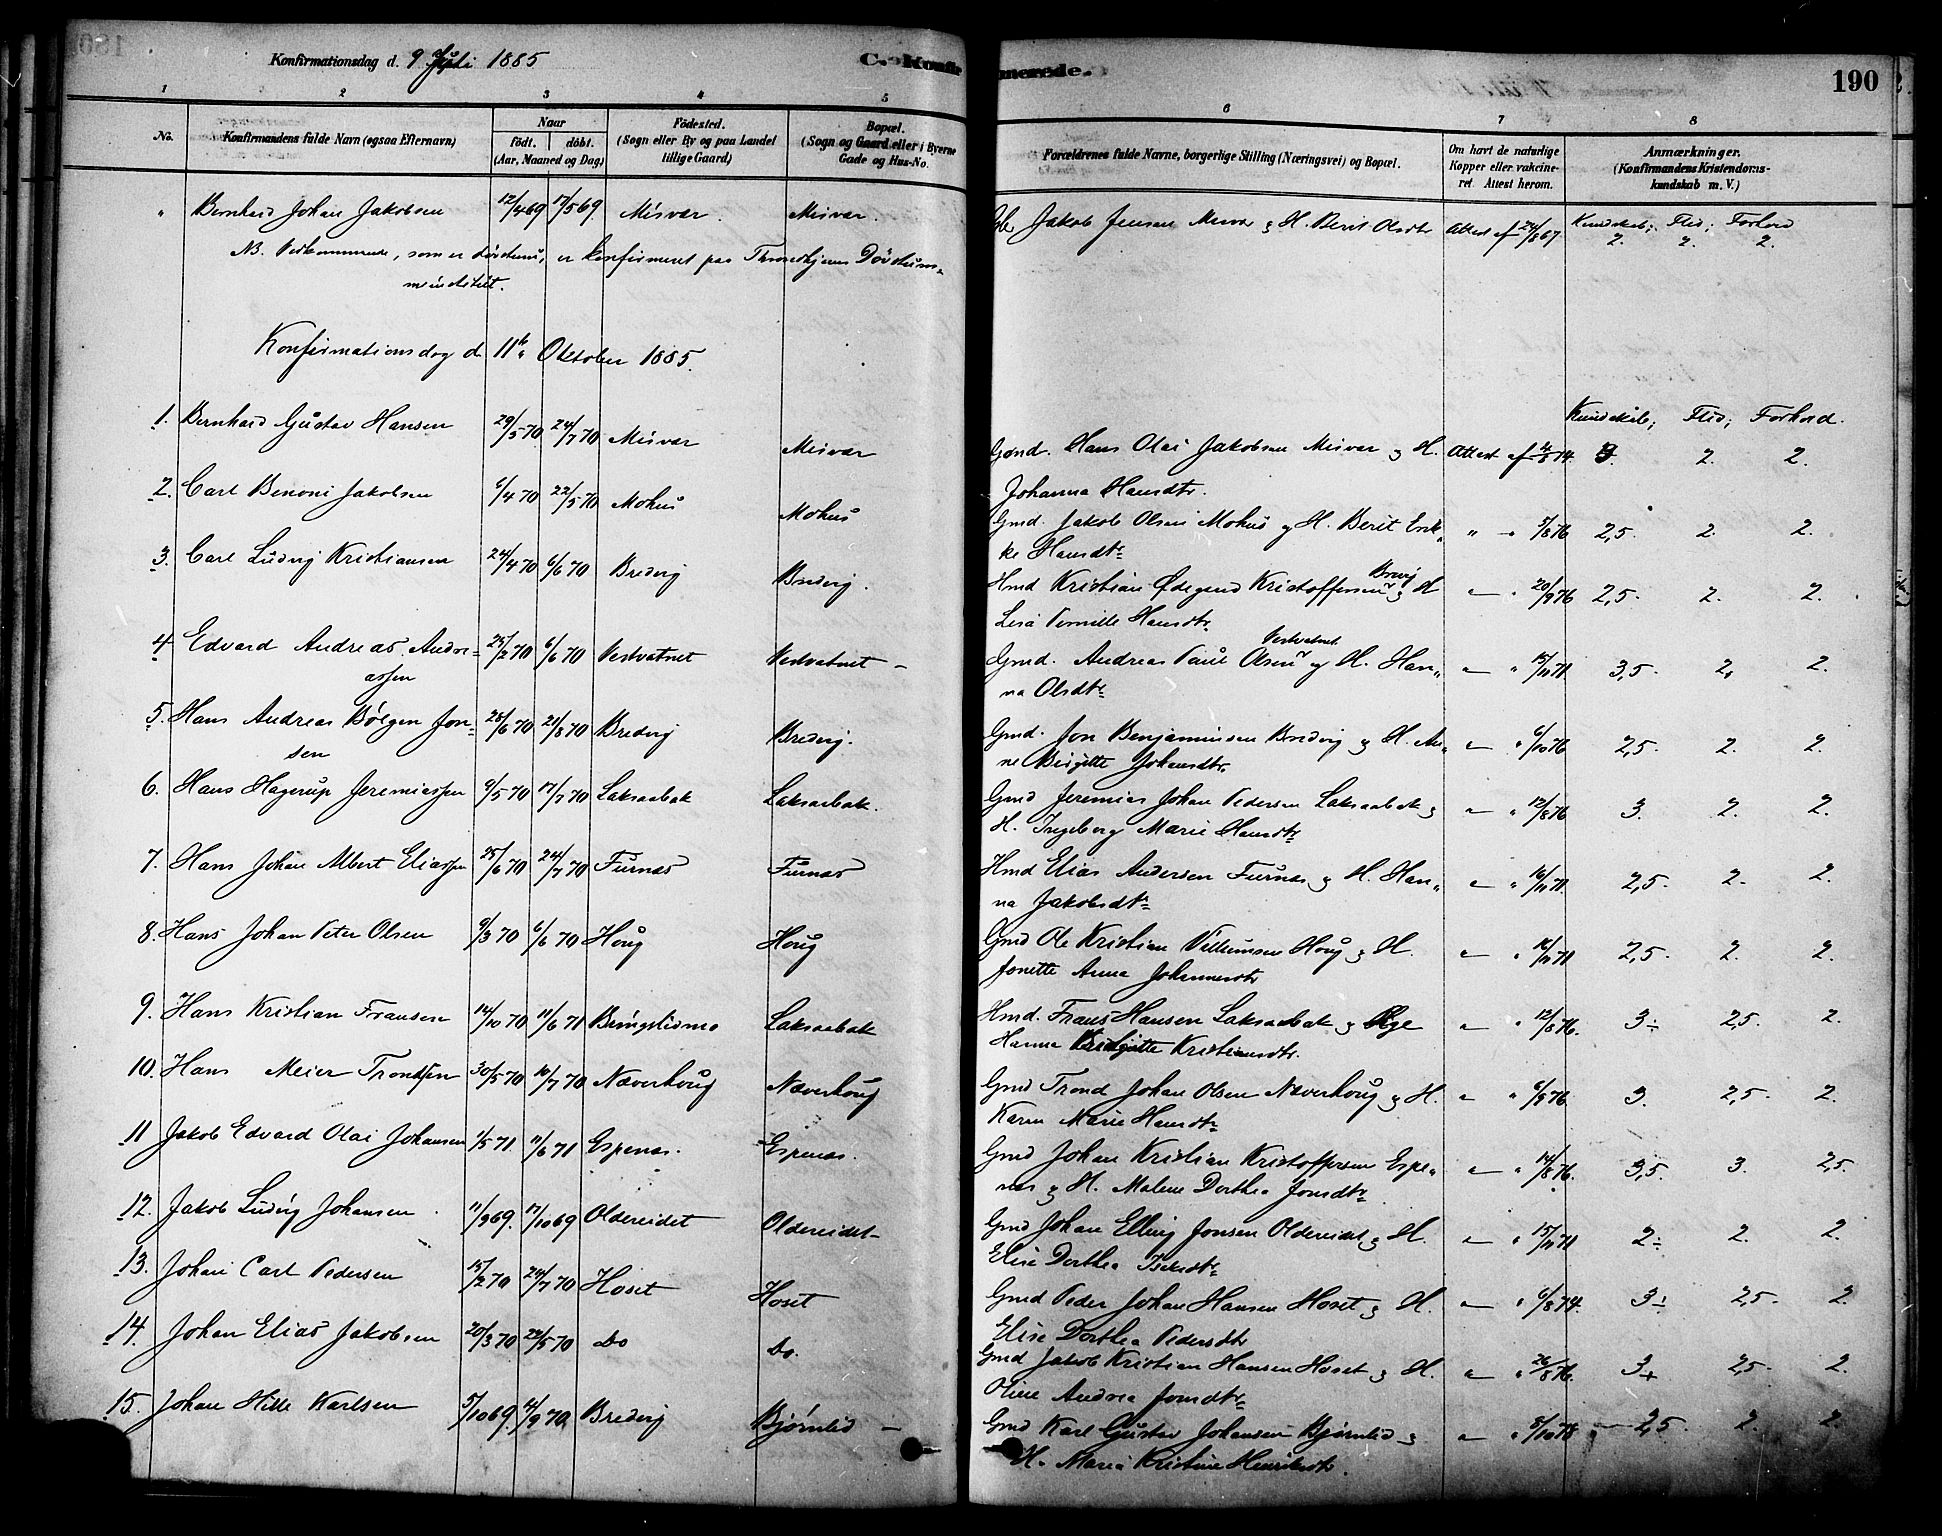 Konfirmationsdag d. 9 Juli 1885
C. Konfirmerede.
190
1 2 3 4 5 6 7 8
No. Konfirmandens fulde Navn (ogsaa Efternavn) Naar født. døbt. (Aar, Maaned og Dag) Fødested. (Sogn eller By og paa Landet tillige Gaard) Bopæl. (Sogn og Gaard eller i Byerne Gade og Hus-No. Forældrenes fulde Navne, borgerlige Stilling (Næringsvei) og Bopæl. Om havt de naturlige Kopper eller vakcineret Attest herom. Anmærkninger. (Konfirmandens Kristendomskundskab m. V.)
" Bernhard Johan Jakobsen 12/4 69 17/5 69 Misvær. Misvær. Jakob Jensen Misvær & H. Berit Olsdtr Attest af 24/8 67 Kundskab; 2. Flid; 2. Forhold 2.
NB. Vedkommende, som er døvstum, er konfirmeret paa Throndhjems Døvstum-
meinstitut.
Konfirmationsdag d. 11te Oktober 1885.
Kundskab; Flid; Forhold.
1. Bernhard Gustav Hansen 29/5 70 24/7 70 Misvær Misvær Gmd. Hans Olai Jakobsen Misvær & H. Attest af 74. 3. 2. 2.
Johanna Hansdtr.
2. Carl Benoni Jakobsen 6/4 70 22/5 70 Mohus Mohus Gmd. Jakob Olsen Mohus & H. Berit Erik- " " 5/8 76 2,5. 2. 2.
ke Hansdtr
3. Carl Ludvig Kristiansen 24/4 70 6/6 70 Bredvig Bredvig. Hmd Kristian Ødegaard Kristoffersen Bredvig & H " " 20/9 76 2,5. 2. 2.
Lisa Pernille Hansdtr
4 Edvard Andreas Andre- 25/2 70 6/6 70 Vestvatnet Vestvatnet Gmd. Andreas Paul Olsen Vestvatnet & H. Han- " " 15/11 71 3,5. 2. 2.
assen
na Olsdtr
5. Hans Andreas Bøtgen Jon- 28/6 70 21/8 70 Bredvig Bredvig. Gmd. Jon Benjaminsen Bredvig & H. An- " " 6/10 76 2,5. 2. 2.
sen
ne Birgitte Johansdtr.
6. Hans Hagerup Jeremiassen 9/5 70 17/7 70 Laksaabak Laksaabak. Gmd Jeremias Johan Pedersen Laksaabak & " " 12/8 76 3. 2. 2.
H. Ingeborg Marie Hansdtr
7. Hans Johan Albert Eliassen 25/6 70 24/7 70 Furnæs Furnæs Hmd Elias Andersen Furnæs & H. Han- " " 16/11 71 2,5. 2. 2.
na Jakobsdtr
8. Hans Johan Peter Olsen 9/3 70 6/6 70 Houg Houg Gmd Ole Kristian Villumsen Houg & H. " " 16/11 71 2,5. 2. 2.
Jonette Anna Johannesdtr
9. Hans Kristian Fransen 14/10 70 11/6 71 Bringslismo Laksaabak Hmd. Frans Hansen Laksaabak & Pige " " 12/8 76. 3÷ 2,5. 2.
Hanna Birgitte Kristiansdtr.
10. Hans Meier Trondsen 30/5 70 10/7 70 Næverhoug Næverhoug Gmd Trond Johan Olsen Næverhoug & H. " " 6/8 76 3. 2,5. 2.
Karen Marie Hansdtr
11 Jakob Edvard Olai Johansen 1/5 71 11/6 71 Espenæs. Espenæs. Gmd Johan Kristian Kristoffersen Espe- " " 14/8 76. 3,5. 3. 2,5.
næs & H. Malene Dorthea Jonsdtr
12. Jakob Ludvig Johansen 11/9 69. 17/10 69 Oldereidet Oldereidet Gmd Johan Elling Jonsen Oldereidet & H. " " 15/11 71 2÷ 2. 2.
Elise Dorthea Isaksdtr
13. Johan Carl Pedersen 15/2 70 24/7 70 Hoset Hoset Gmd Peder Johan Hansen Hoset & H. " " 6/8 74. 3÷ 2,5. 2.
Elise Dorthea Pedersdtr
14. Johan Elias Jakobsen 20/3 70 22/5 70 Do Do. Gmd Jakob Kristian Hansen Hoset & H. " " 26/8 76. 3+ 2,5. 2.
Oline Andrea Jonsdtr
15. Johan Hille Karlsen 5/10 69 4/9 70 Bredvig Bjørnlid Gmd Karl Gustav Johansen Bjørnlid & " " 8/10 78 2,5. 2. 2.
H. Maria Kristine Henriksdtr.